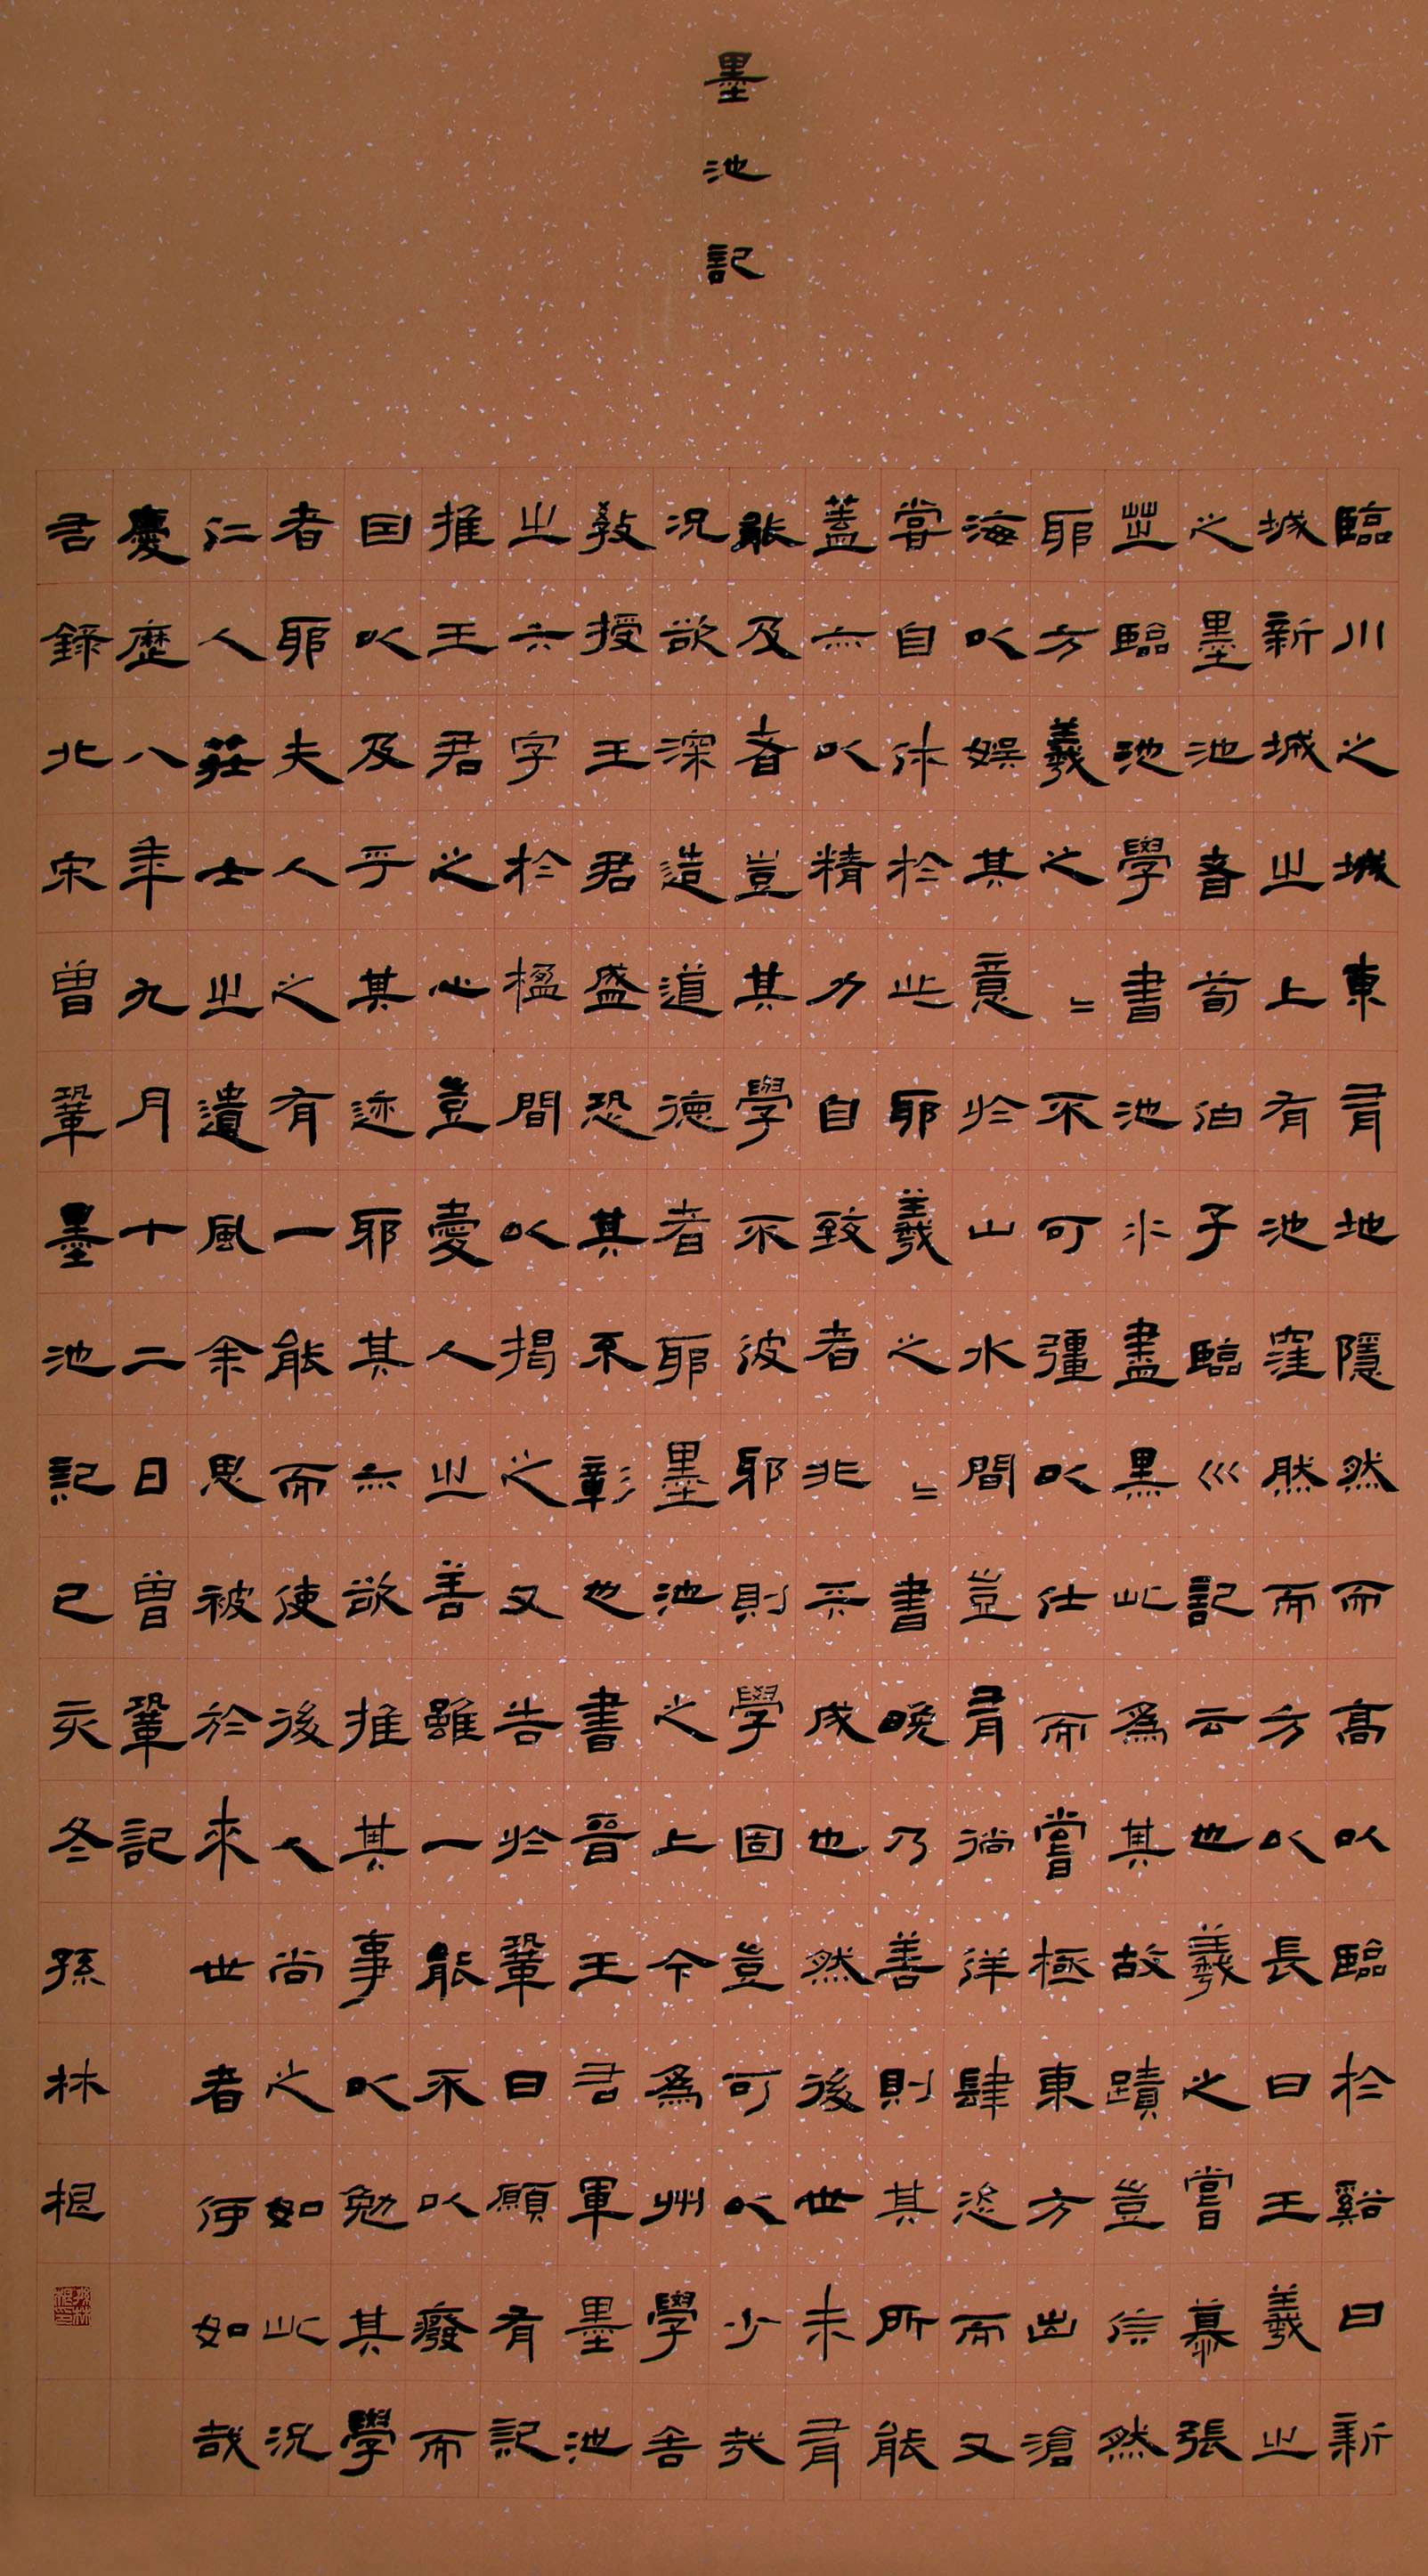 墨池記
臨川之城東有地隱然而高以臨於谿曰新
城新城之上有池窪然而方以長曰王羲之
之墨池者荀伯子臨川記云也羲之嘗慕張
芝臨池學書池水盡黑此為其故蹟豈信然
耶方羲之〻不可彊以仕而嘗極東方出滄
海以娛其意於山水間豈有徜徉肆恣而又
嘗自休於此耶羲之〻書晚乃善則其所能
蓋亦以精力自致者非天成也然後世未有
能及者豈其學不彼耶則學固豈可以少哉
況欲深造道德者耶墨池之上今為州學舍
教授王君盛恐其不彰也書晉王右軍墨池
之六字於楹間以揭之又告於鞏曰願有記
推王君之心豈愛人之善雖一能不以廢而
因以及乎其迹耶其亦欲推其事以勉其學
者耶夫人之有一能而使後人尚之如此況
仁人莊士之遺風余思被於來世者何如哉
慶歷八年九月十二日曾鞏記
右錄北宋曾鞏墨池記己亥冬孫林根
孫林根印